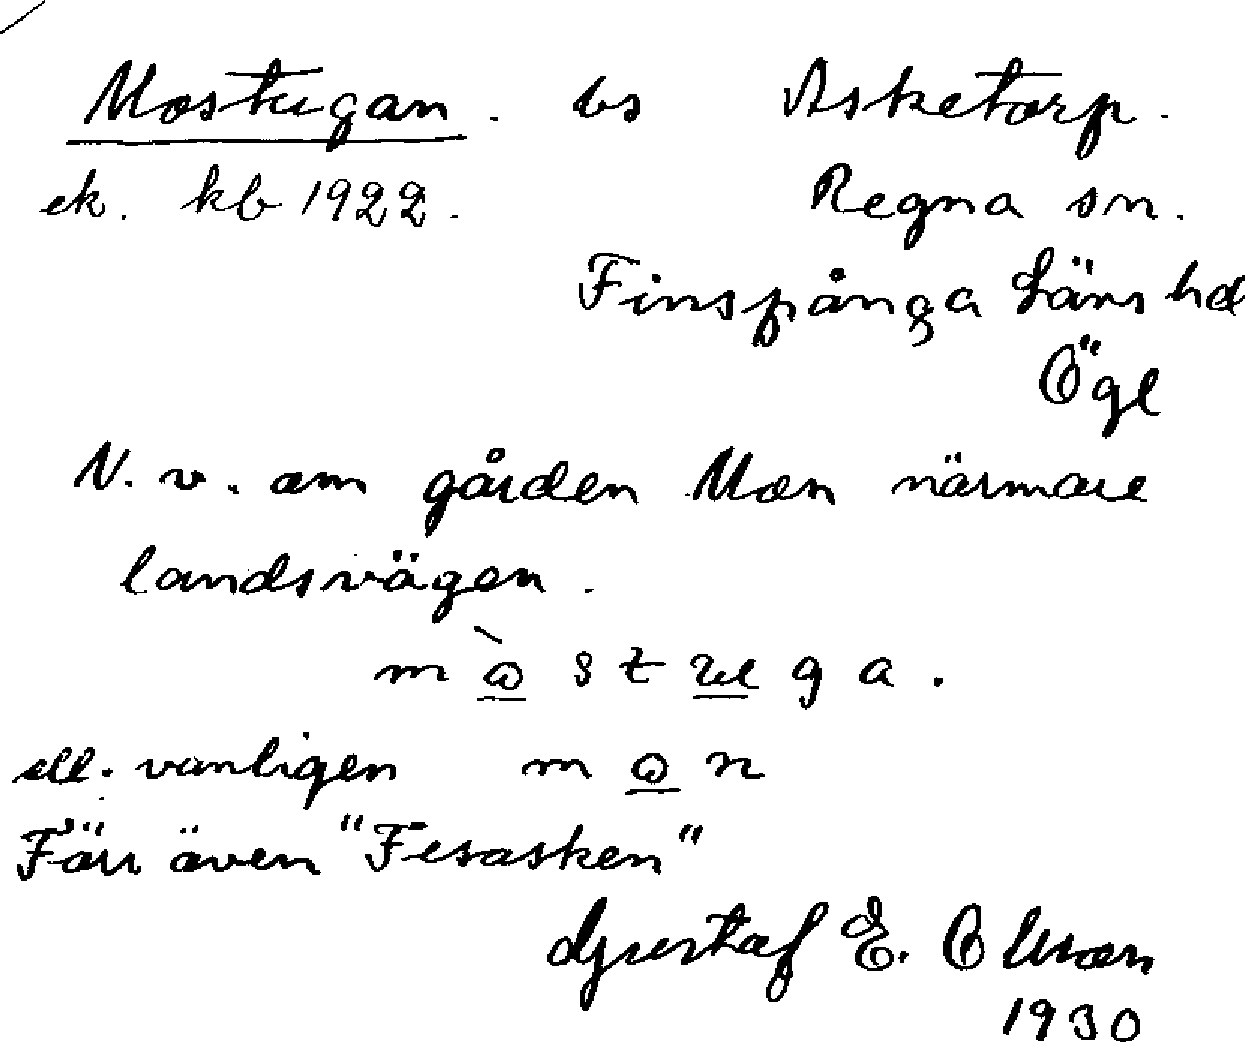 Mostugan. bs Asketorp.
ek. kb 1922. Regna sn.
Finspånga läns hd
Ögl
N. v. om gården Mon närmare
landsvägen.
m ò s t u g a.
ell. vanligen m o n
Förr även "Fesasken"
Gustaf E. Olsson
1930